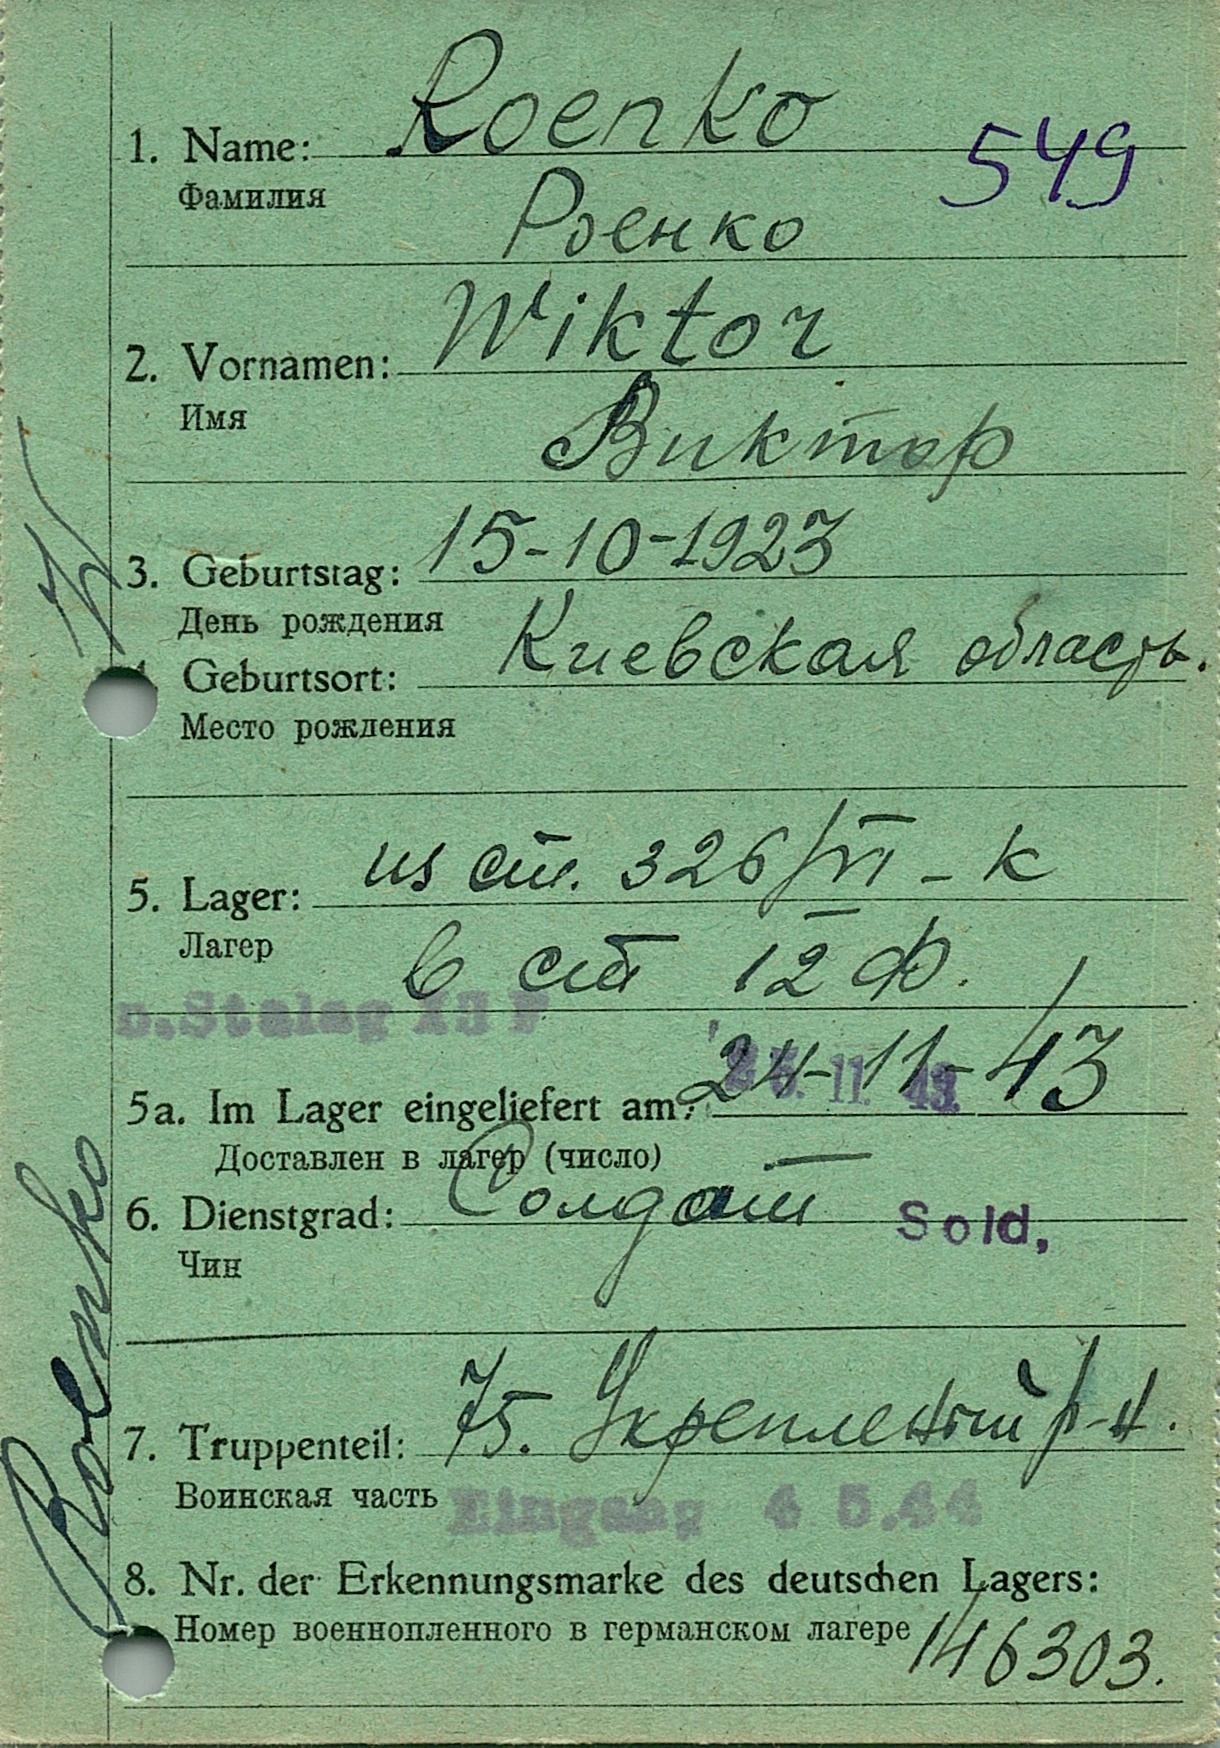 Roenko
1. Name:
549
Фамилия
Роенко
Wiktor
2. Vornamen:
Имя
Виктор
15-10-1923
3. Geburtstag:
День рождения
Киевская область.
Geburtsort:
Место рождения
из ст. 326/VI - К
5. Lager:
Лагер
в ст 12 Ф.
n. Stalag
24-11-43
25. 11. 43.
5a. Im Lager eingeliefert am:
Доставлен в лагер (число)
Солдат
6. Dienstgrad:
Sold,
Чин
75. Укрепленный р-н.
7. Truppenteil:
Воинская часть
Eingang 4 5.44
8. Nr. der Erkennungsmarke des deutschen Lagers:
Номер военнопленного в германском лагере
146303.
Roenko